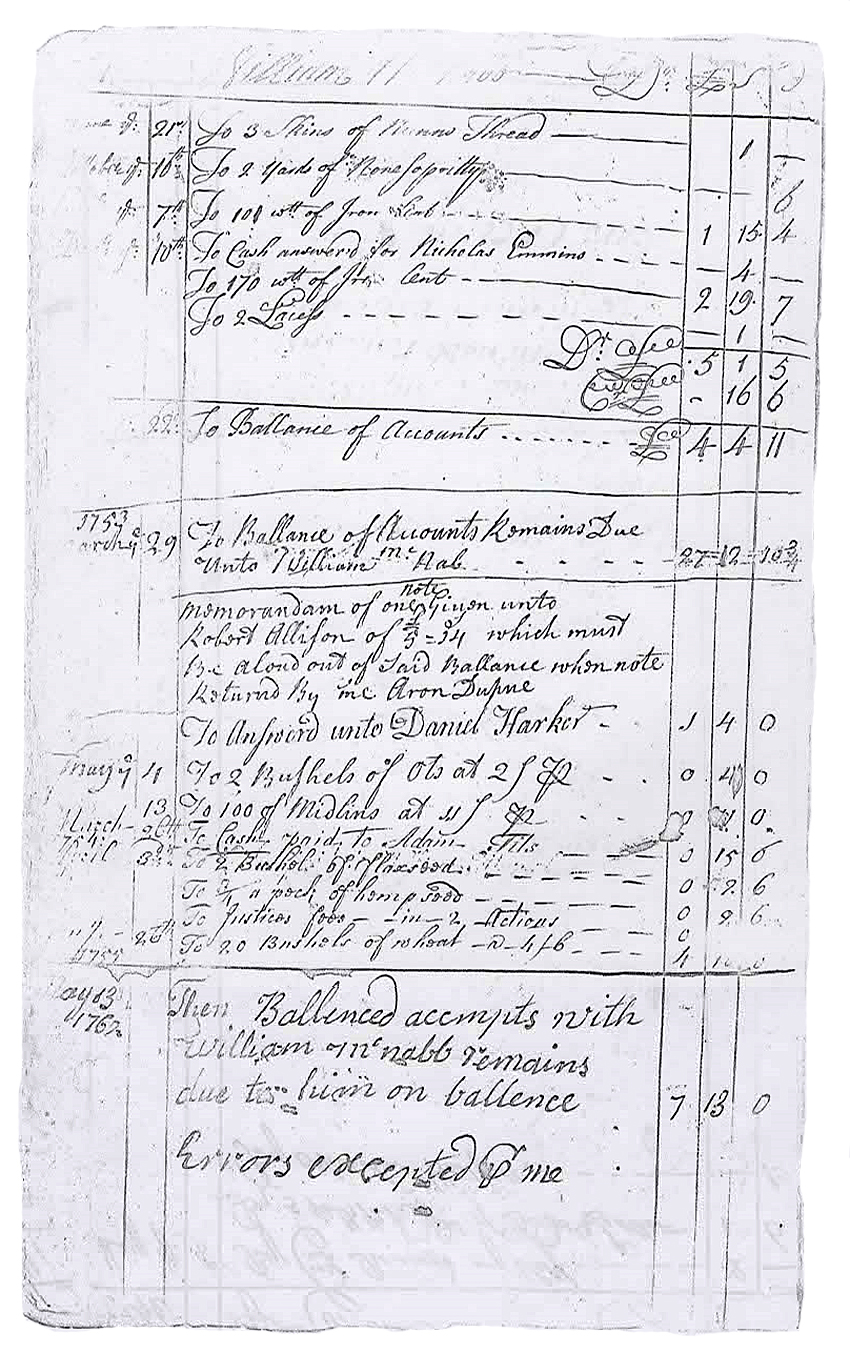 William
21st To 3 Skins of Nunns Thread 1 —
10th To 2 Yards of Nonesopritty 6
7th To 101 wtt of Iron 1 15 4
10th To Cash answerd for Nicholas Emmins - 4 —
To 170 wtt of Cent 2 19 7
To 2 Laces — 1 —
Dr 5 1 5
Cr - 16 6
22d To Ballance of Accounts 4 4 11
1753
29 To Ballance of Accounts Remains Due
Unto William mc Nab 27=12=10 3/4
note
memorandam of one Given unto
Robert Allison of £5=s14 which must
Be aloud out of Said Ballance when note
Returnd By me Aron Dupue
To Answord unto Daniel Harker 1 4 0
4 To 2 Bushels of Ots at 2 s 0 4 0
13 To 100 of Midlins at 11 s 0
March 26th To Cash paid to Adam 0 15 6
3rd To 2 Bushel of flaxseed 0 2 6
To a peck of hemp seed 0 2 6
To Justices fees in 2 Actions 0
26th To 20 Bushels of wheat a 4/6 4 10 0
May 13
176
Then Ballenced accmpts with
William mcnabb remains
due to him on ballence 7 13 0
Errors excepted pr me